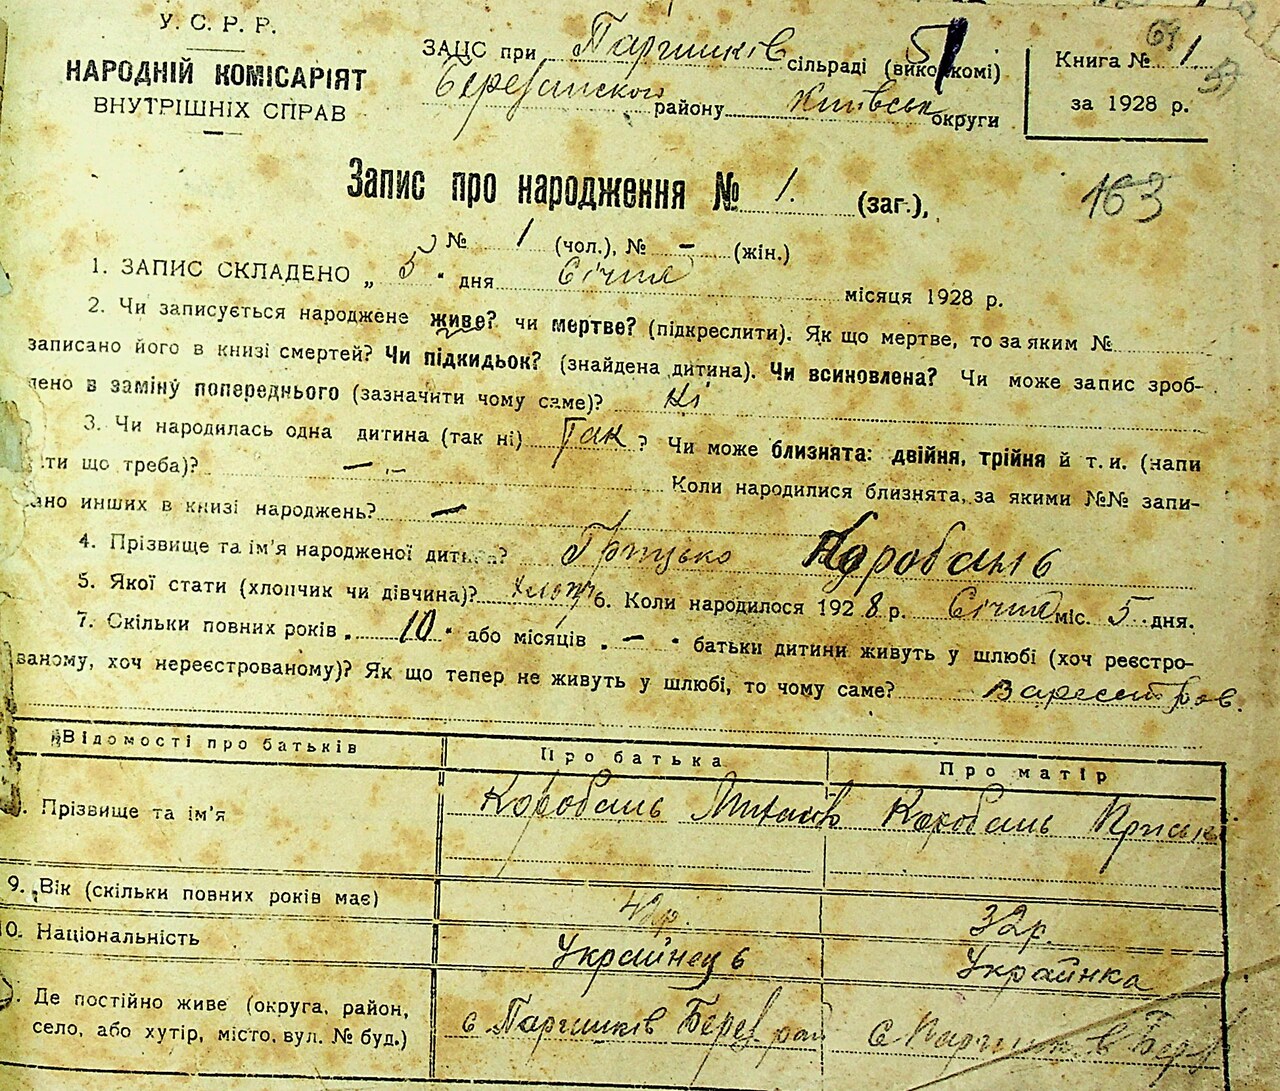 У. С. Р. Р.
НАРОДНІЙ КОМІСАРІЯТ
ВНУТРІШНІХ СПРАВ
ЗАЦС при Паришків сільраді (виконкомі)
Березанского району Київськ округи
51
Книга № 1
за 1928 р.
69
53
163
Запис про народження № 1. (заг.),
№ 1 (чол.), № - (жін.)
1. ЗАПИС СКЛАДЕНО „ 5 " дня Січня місяця 1928 р.
2. Чи записується народжене живе? чи мертве? (підкреслити). Як що мертве, то за яким №
записано його в книзі смертей? Чи підкидьок? (знайдена дитина). Чи всиновлена? Чи може запис зроб-
лено в заміну попереднього (зазначити чому саме)? Ні
3. Чи народилась одна дитина (так ні) Так ? Чи може близнята: двійня, трійня й т. и. (напи
ти що треба)? — - Коли народилися близнята, за якими №№ запи-
ано инших в книзі народжень? —
4. Прізвище та ім'я народженої дитини? Грицько Коробань
5. Якої стати (хлопчик чи дівчина)? хлопч 6. Коли народилося 1928 р. Січня міс. 5 дня.
7. Скільки повних років „ 10 " або місяців „ — " батьки дитини живуть у шлюбі (хоч реєстро-
ваному, хоч нереєстрованому)? Як що тепер не живуть у шлюбі, то чому саме?
Відомості про батьків Про батька Про матір
Прізвище та ім'я Коробань Коробань
9. Вік (скільки повних років має) 42р. 32р.
10. Національність Українець Українка
Де постійно живе (округа, район,
село, або хутір, місто, вул. № буд.) с Паришків Берез рай С Паришків Бер